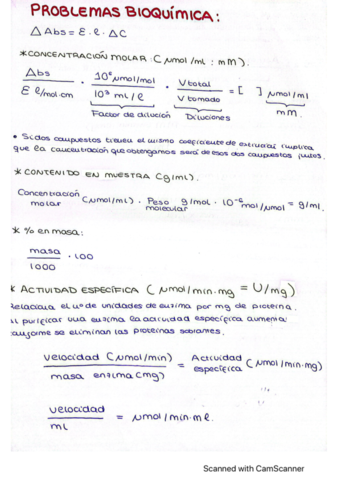 PROBLEMAS BIOQUÍMICA:
△ Abs = ε · e · △C
* CONCENTRACIÓN MOLAR: C μmol/ml : mM).
△bs / ε e/mol·cm · 10⁶ μmol/mol / 10³ ml/e · V total / V tomado = [ ] μmol/ml
Factor de dilución Diluciones mM
• Si dos compuestos tienen el mismo coeficiente de extinción implica
que la concentración que obtengamos será de esos dos compuestos juntos.
* CONTENIDO EN MUESTRA C g/ml).
Concentración molar (μmol/ml) · Peso molecular g/mol · 10⁻⁶ mol/μmol = g/ml.
* % en masa:
masa / 1000 · 100
* ACTIVIDAD ESPECÍFICA ( μmol/min·mg = U/mg)
Relaciona el nº de unidades de enzima por mg de proteína.
Al purificar una enzima la actividad específica aumenta
conforme se eliminan las proteínas sobrantes.
velocidad (μmol/min) / masa enzima (mg) = Actividad específica ( μmol/min·mg)
velocidad / ml = μmol/min·ml.
Scanned with CamScanner